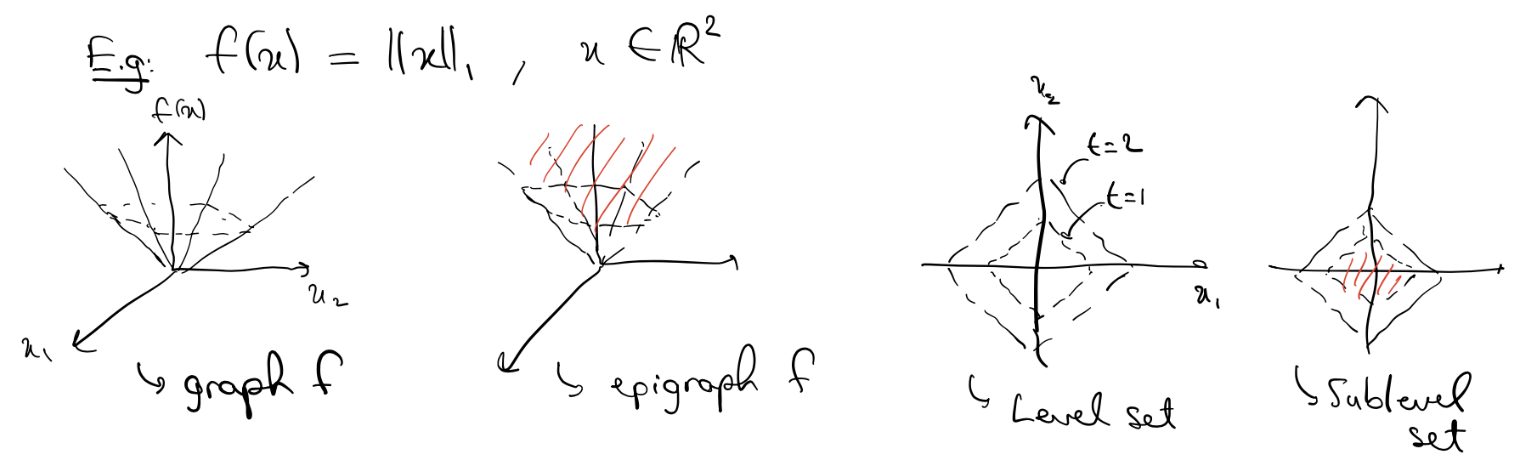 E.g: f(x) = ||x||₁ , x ∈ ℝ²
f(x)
x₂
x₁
↳ graph f
↳ epigraph f
x₂
t=2
t=1
x₁
↳ Level set
↳ Sublevel
set